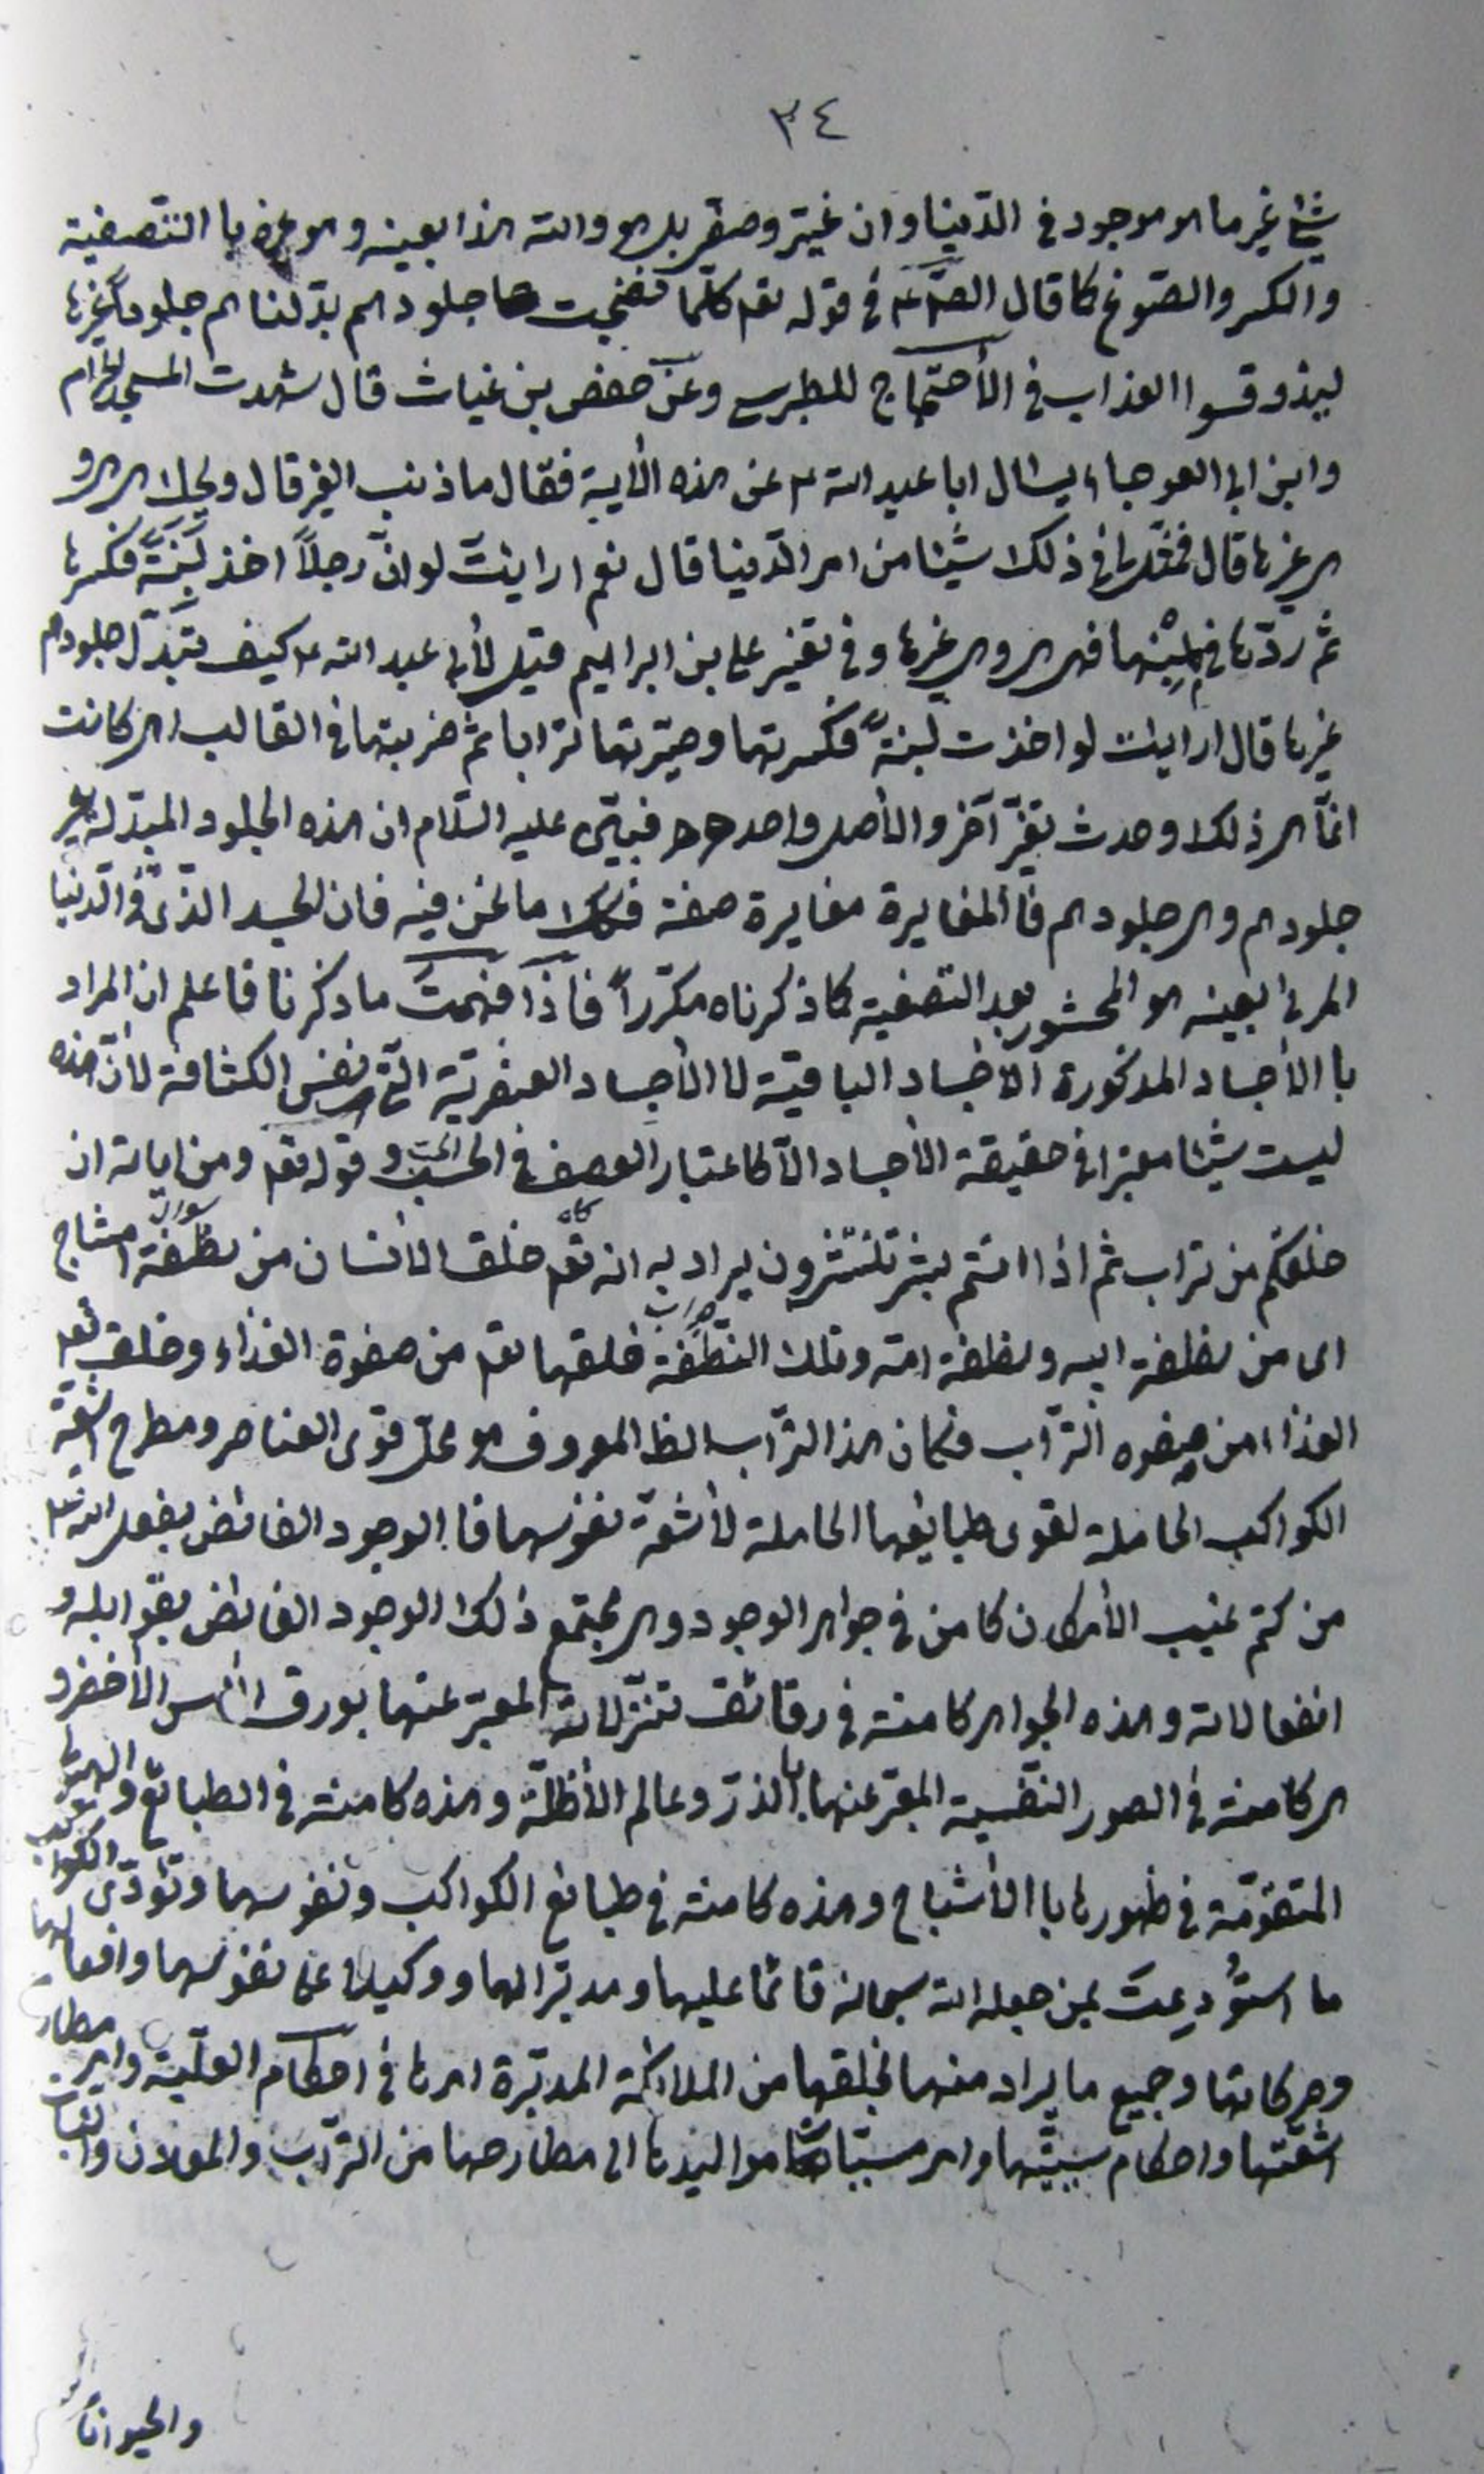 ٣٤
شيئا غير ما هو موجود في الدّنيا وان غيّر وصفّى بل هو والله هذا بعينه وهو غيره با التّصفية
والكسر والصّوغ كما قال الصّ ع في قوله تعم كلّما نضجت جلودهم بدّلناهم جلوداً غيرها
ليذوقوا العذاب في الأحتجاج للطبرسي وعن حفص بن غياث قال شهدت المسجد الحرام
وابن ابي العوجاء يسئال ابا عبد الله ع عن هذه الأية فقال ما ذنب الغير قال ويحك هي هي و
هي غيرها قال فمثّل لي في ذلك شيئا من امر الدّنيا قال نعم ارايت لو انّ رجلاً اخذ لَبِنَةً فكسرها
ثم ردّها في مِلْبَنِها فهي هي وهي غيرها وفي تفسير علي بن ابراهيم قيل لأبي عبد الله ع كيف تبدّل جلودهم
غيرها قال ارايت لو اخذت لبنةً فكسرتها وصيّرتها ترابا ثم ضربتها في القالب اهي كانت
انمّا هي ذلك وحدث تغيّر آخر والأصل واحد فبيّن عليه السّلام ان هذه الجلود المبدّلة غير
جلودهم وهي جلودهم فا المغايرة مغايرة صفة فكك ما نحن فيه فان الجسد الّذي في الدنيا
المرئ بعينه هو المحشور بعد التصفية كما ذكرناه مكرّراً فاذا فهمتَ ما ذكرنا فاعلم ان المراد
با الأجساد المذكورة الأجساد الباقية لا الأجساد العنصريّة الّتي هي نفس الكثافة لأنّ هذه
ليست شيئا معتبرا في حقيقة الأجساد الاّ كاعتبار الوصف في الحسب وقوله تعم ومن اياته ان
خلقكم من تراب ثم اذا انتم بشر تنتشرون يراد به انه تعم خلق الأنسان من نطفة امشاج
اى من نطفة ابيه ونطفة امّه وتلك النّطفة خلقها تعم من صفوة الغذاء وخلق تعم
الغذاء من صفوه التّراب فكان هذا التّراب الظ المعروف هو محلّ قوى العناصر ومطرح اشعّة
الكواكب الحاملة لقوى طبايعها الحاملة لأشعّة نفوسها فا الوجود الفائض بفعل الله تعم
من كتم غيب الأمكان كامن في جواهر الوجود وهي مجتمع ذلك الوجود الفائض بقوابله و
انفعالاته وهذه الجواهر كامنة في رقائق تنزّلاته المعبّر عنها بورق الآس الأخضر و
هي كامنة في الصور النّفسية المعبّر عنها با الذرّ وعالم الأظلّة وهذه كامنة في الطبائع والهيولى
المتقوّمة في ظهورها با الأشباح وهذه كامنة في طبائع الكواكب ونفوسها وتؤدّى الكواكب
ما استُودِعتَ بمن جعله الله سبحانه قائما عليها ومدبّرا لها ووكيلا على نفوسها وافعالها
وحركاتها وجميع ما يراد منها بخلقها من الملائكة المدبّرة امرها في احكام العلّية وامر مطارح
اشعّتها واحكام سببيّتها وامر مسبّباتها مواليدها الى مطارحها من التّراب والمعادن والنّبات
والحيوانا